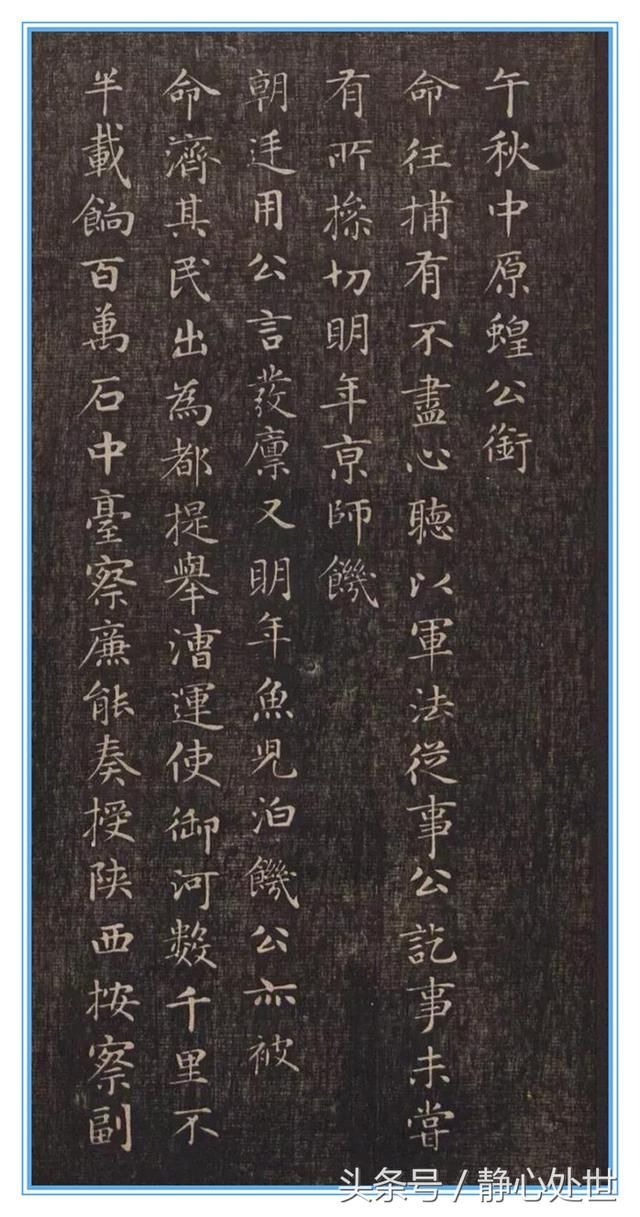 午秋中原蝗公銜
命往捕有不盡心聽以軍法從事公訖事未嘗
有所捺切明年京師饑
朝廷用公言發廪又明年魚児泊饑公亦被
命濟其民出為都提舉漕運使御河數千里不
半載餉百萬石中臺察廉能奏授陝西按察副
头条号 / 静心处世